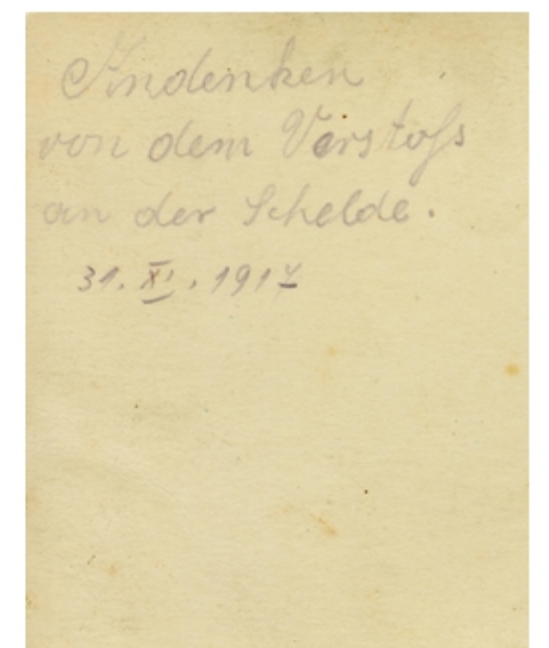 Andenken
von dem Vorstoß
an der Schelde.
31. XI. 1917